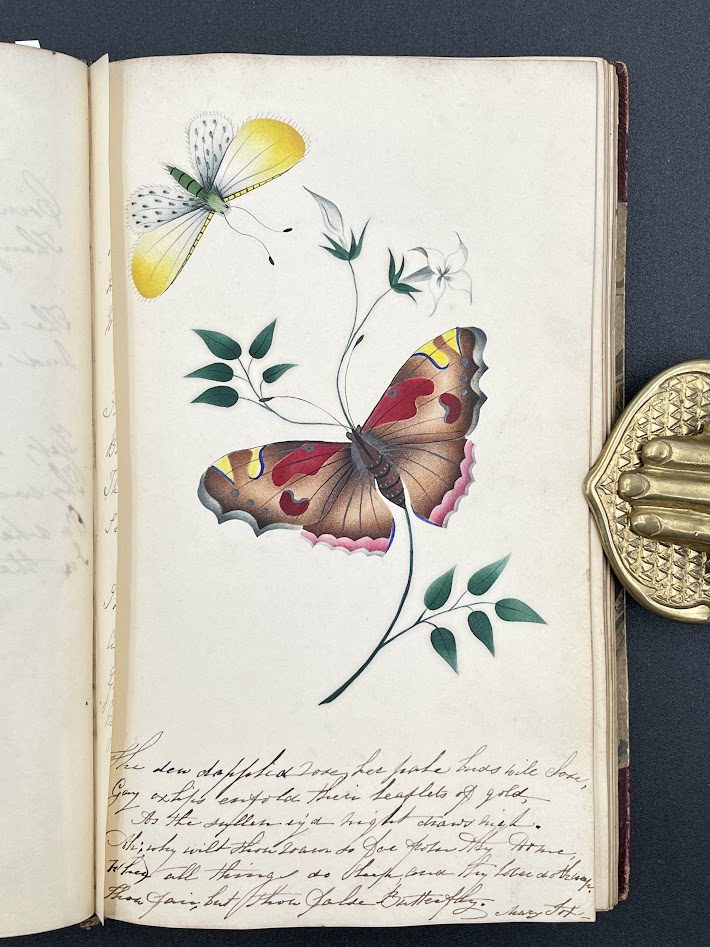 The dew dapplied rose, her pale buds will close,
Gay cowslips enfold their leaflets of gold,
As the sullen ey'd night draws nigh.
Ah; why wilt thou roam so far from thy home,
When all things do sleep, and thy love doth weep,
Thou fair, but thou false Butterfly.
Mary